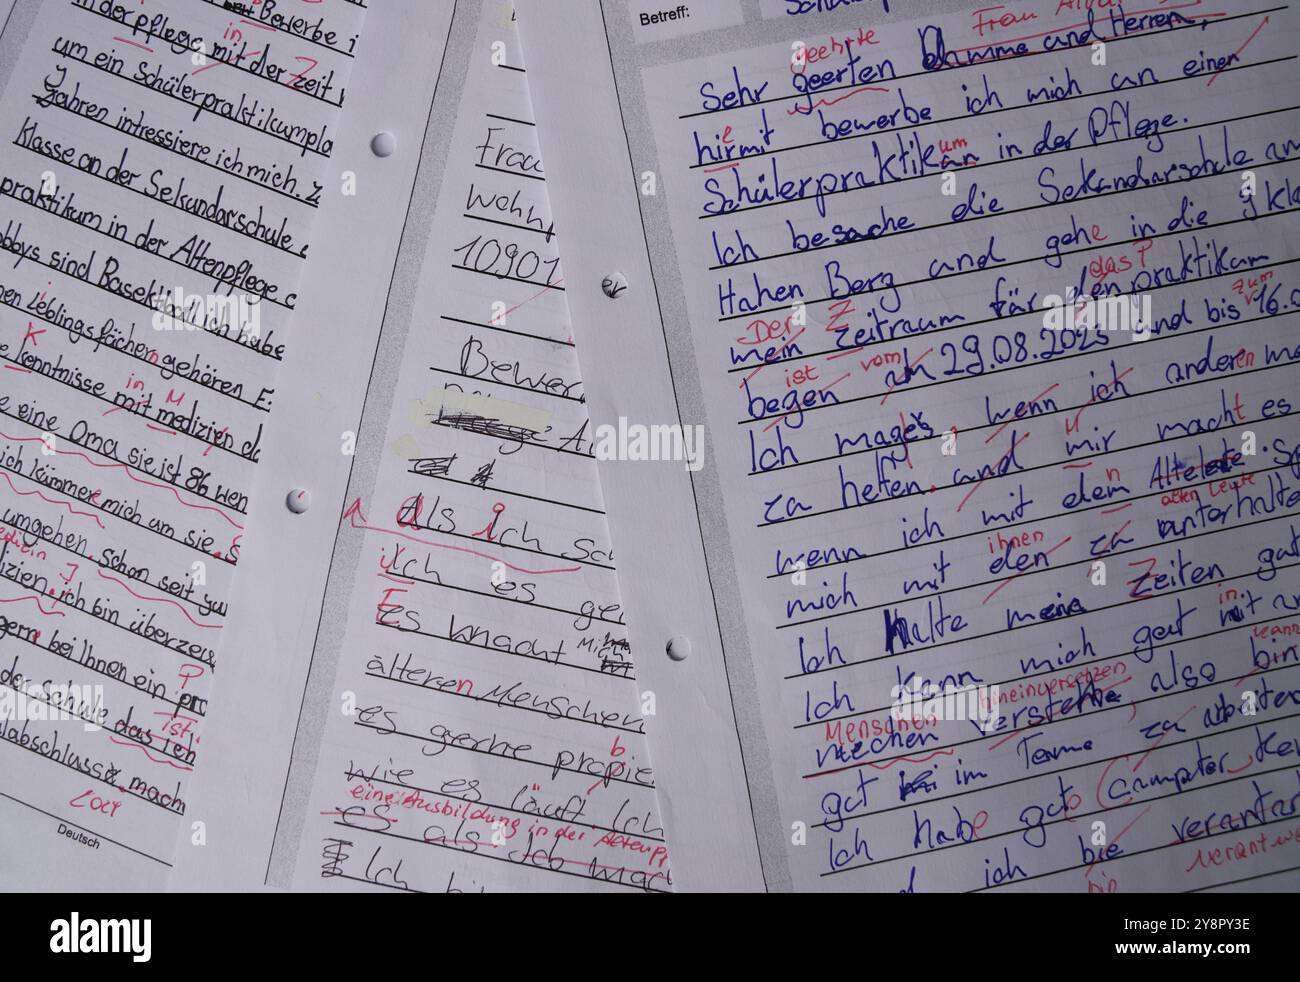 Bewerbe i
in der pflege mit der Zeit
in
um ein Schülerpraktikumpla
Jahren intressiere ich mich. Z
Klasse an der Sekundarschule
praktikum in der Altenpflege
obbys sind Basektball ich habe
en Lieblingsfächern gehören E
kenntnisse mit medizien d
K
in M
e eine Oma sie ist 86 wen
ich kümmere mich um sie. S
umgehen. schon seit
edizin
izien. ich bin überzeu
gern bei Ihnen ein pra
der Schule das ich
ist
labschluss mach
2024
Deutsch
Frau
Wohn
10901
Bewer
Als ich sc
Ich es ger
Es macht mich
älteren Menschen
es gerne probie
b
wie es läuft Ich
eine Ausbildung in der Altenp
es als Job mac
Ich bi
er
Betreff:
Frau
geehrte
Sehr geerten Damme und Herren,
hirmit bewerbe ich mich an einen
e
Schülerpraktikan in der Pflege.
um
Ich besuche die Sekundarschule am
Hahen Berg und gehe in die 9 kla
das?
Der Z
mein zeitraum für den praktikum
ist vom zum
begen am 29.08.2025 und bis 16.0
Ich mages, wenn ich anderen me
zu helfen. and mir macht es
u
wenn ich mit dem Altelete . Se
n
alten Leute
mich mit den zu unterhalte
ihnen
Ich halte meine Zeiten gut
Ich kenn mich gut mit an
in
kann
Menschen hineinversetzen
mechen verstehe, also bin
gut im Teame zu arbeiten
Ich habe gute Computer ken
ich bie verantwor
bin verantwor
alamy
Image ID: 2Y8PY3E
www.alamy.com